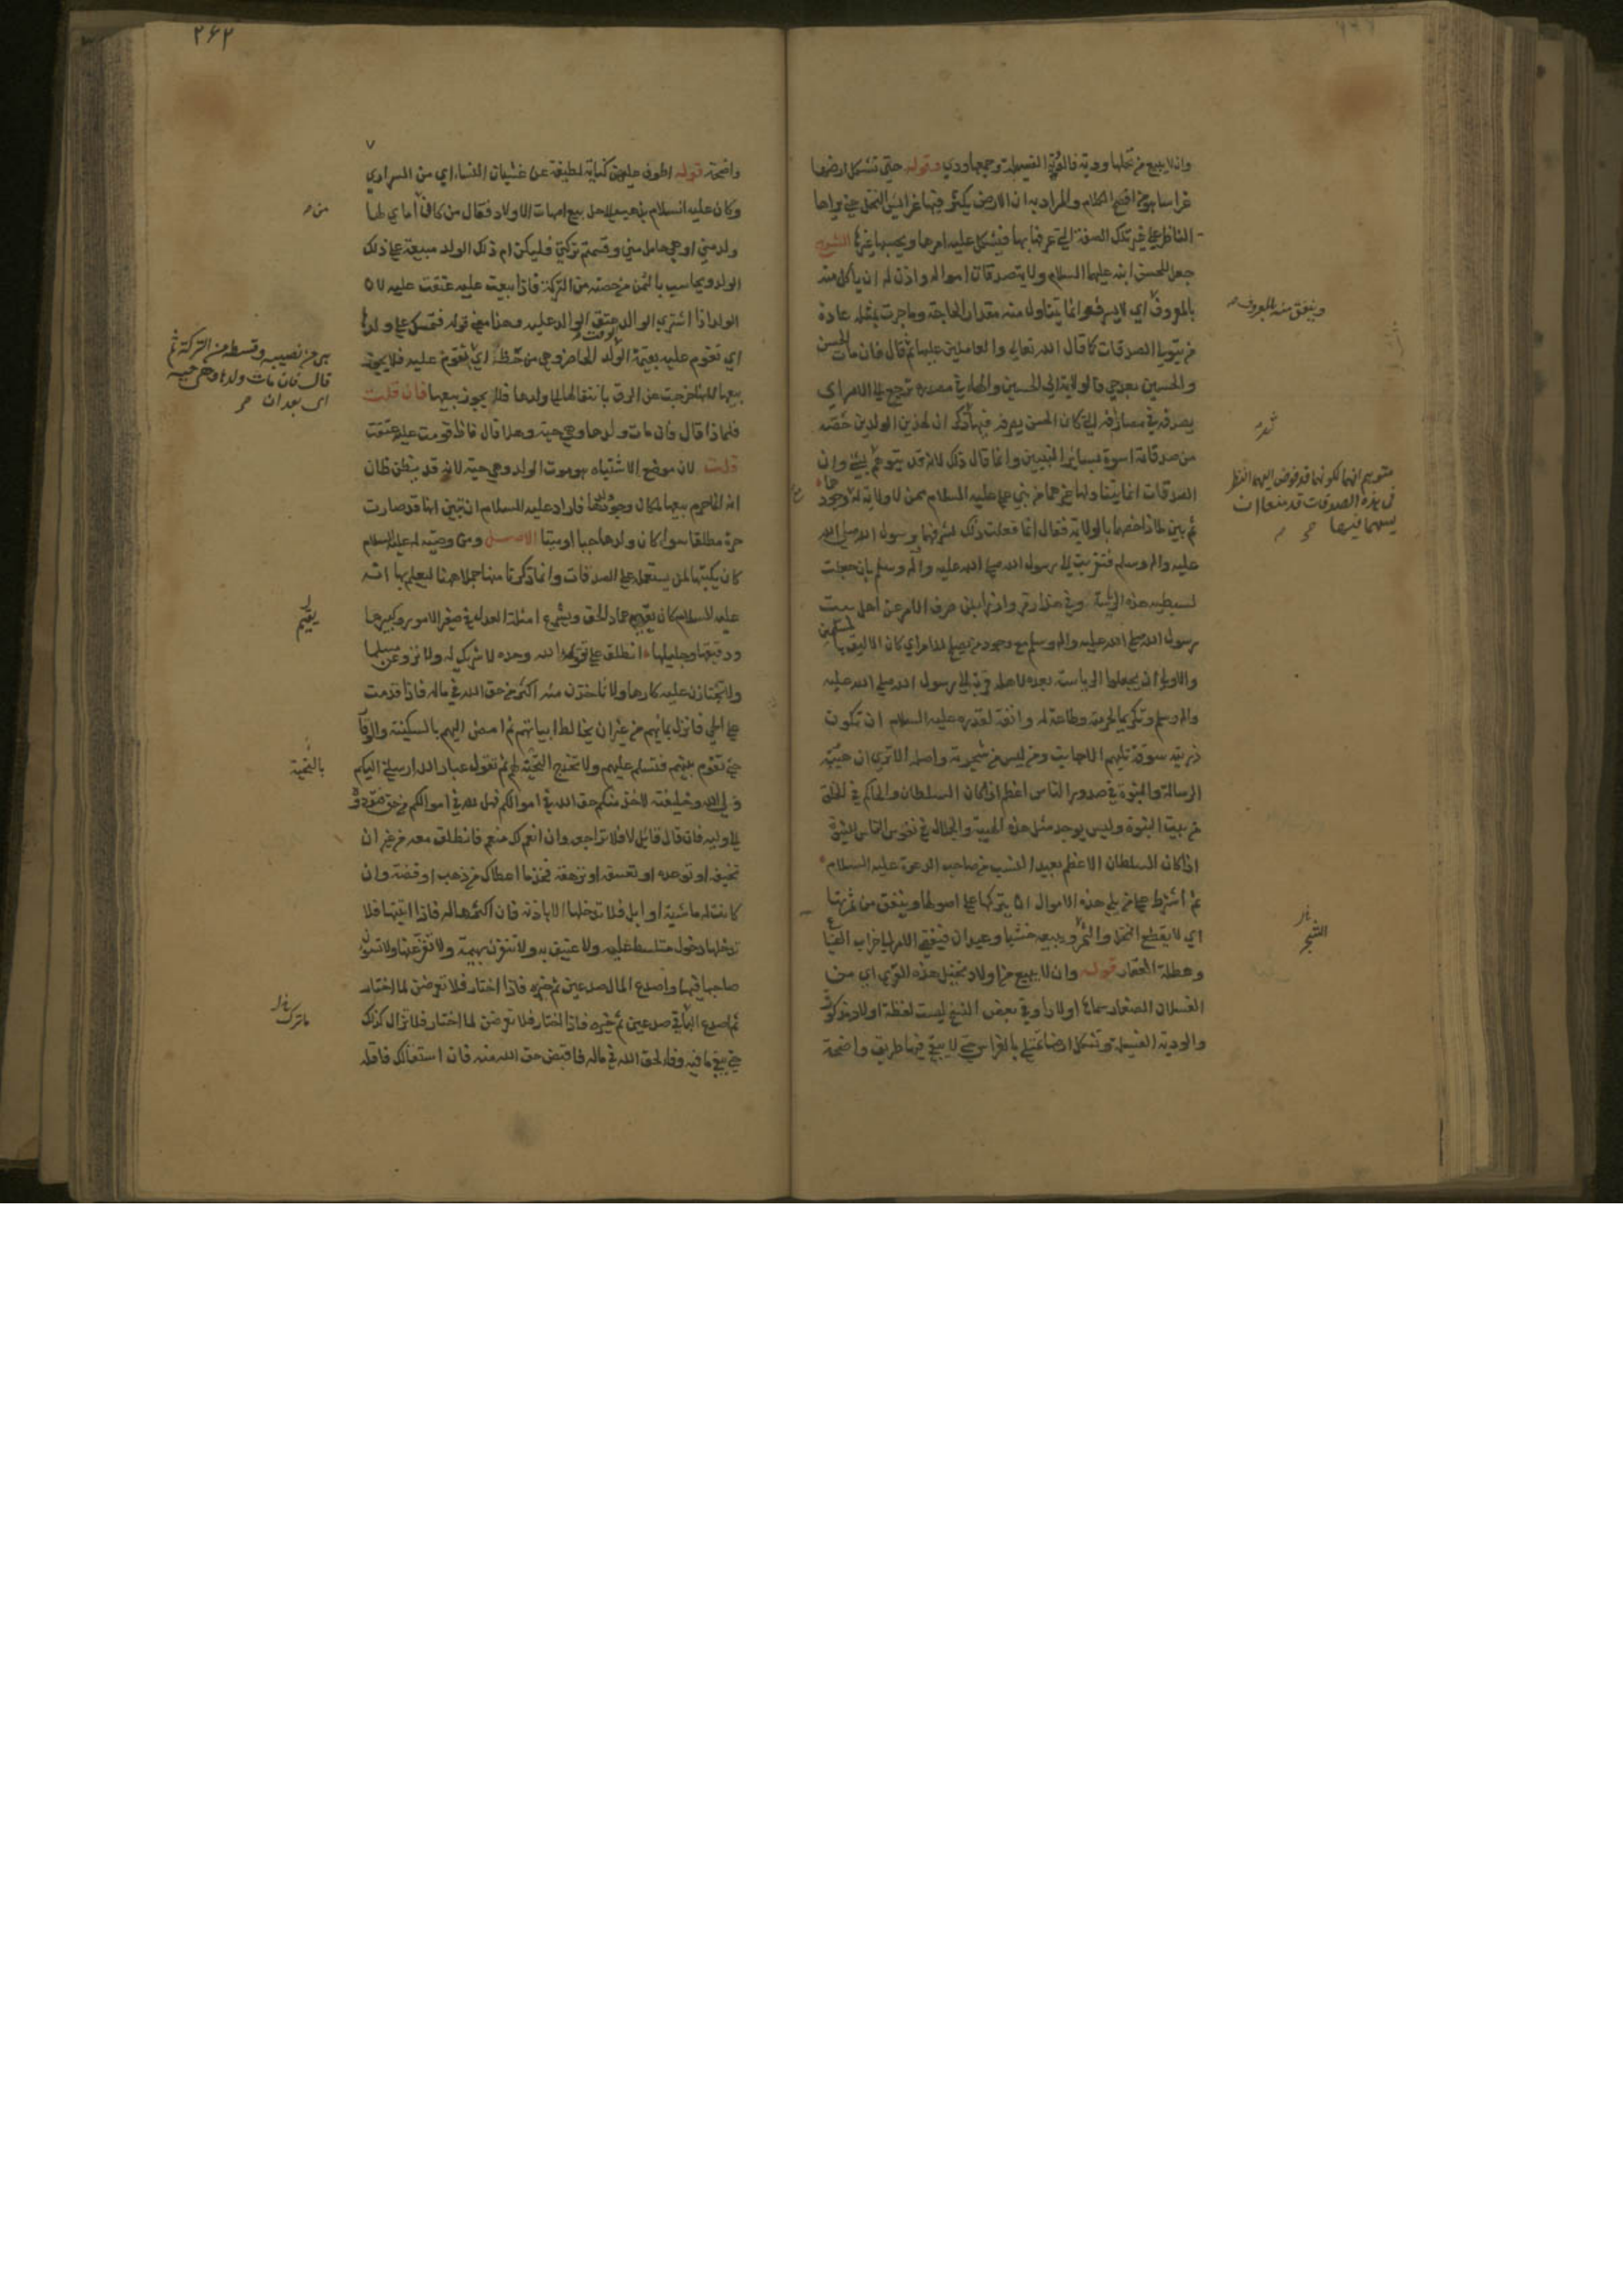 وان لا يبيع من نخلها ودية فالودية الفسيلة وجمعها ودي وقوله حتى تشكل ارضها
غراسا هو من افصح الكلام والمراد به ان الارض يكثر فيها غراس النخل حتى يراها
الناظر على غير تلك الصفة التي عرفها بها فيشكل عليه امرها ويحسبها غيرها الشرح
جعل للحسن ابنه عليهما السلام ولاية صدقات امواله واذن له ان يأكل منه
بالمعروف اي لا يسرف وانما يتناول منه مقدار الحاجة وما جرت بمثله عادة
من يتولى الصدقات كما قال الله تعالى والعاملين عليها ثم قال فان مات الحسن
والحسين بعده حي فالولاية الى الحسين والهاء في مصدره ترجع الى الامر اي
يصرفه في مصارفه التي كان الحسن يصرفه فيها ذكر ان لهذين الولدين حصة
من صدقاته اسوة بسائر البنين وانما قال ذلك لانه قد يتوهم
الصدقات انما يتناولها غيرهما من بني علي عليه السلام ممن لا ولاية له وجود
ثم بين لماذا خصهما بالولاية فقال انما فعلت ذلك لشرفهما برسول الله صلى الله
عليه واله وسلم فتقربت الى رسول الله صلى الله عليه واله وسلم بان جعلت
لسبطيه هذه الرياسة وفي هذا رمز وازراء بمن صرف الامر عن اهل بيت
رسول الله صلى الله عليه واله وسلم مع وجود من يصلح للامر اي كان الاليق بالمسلمين
والاولى ان يجعلوا الرياسة بعده لاهله قربة الى رسول الله صلى الله عليه
واله وسلم وتكريما لحرمته وطاعة له وانفة لقدره عليه السلام ان تكون
ذريته سوقة يليهم الاجانب ومن ليس من شجرته واصله الا ترى ان هيبة
الرسالة والنبوة في صدور الناس اعظم اذا كان السلطان والحاكم في الخلق
من بيت النبوة وليس يوجد مثل هذه الهيبة والجلال في نفوس الناس للنبوة
اذا كان السلطان الاعظم بعيد النسب من صاحب الدعوة عليه السلام
ثم اشترط على من يلي هذه الاموال ان يتركها على اصولها وينفق من ثمرتها
اي لا يقطع النخل والثمر ويبيعه خشبا وعيدانا فيفضي الامر الى خراب الضياع
وعطلة العقار قوله وان لا يبيع من اولاد نخيل هذه القرى اي من
الفسلان الصغار سماها اولادا وفي بعض النسخ ليست لفظة اولاد مذكورة
والودية الفسيلة وتشكل ارضها تمتلي بالغراس حتى لا يبقى فيها طريقة واضحة
وينفق منه بالمعروف
متوهم انهما لكونهما قد فوض اليهما النظر
في هذه الصدقات قد منعا ان
يسهما فيها
الشجر
۲۶۲
واضحة قوله اطوف عليهن كناية لطيفة عن غشيان النساء اي من السراري
وكان عليه السلام يذهب الى حل بيع امهات الاولاد فقال من كان من امائي لها
ولد مني او هي حامل مني وقسمتم تركتي فليكن ام ذلك الولد مبيعة على ذلك
الولد ويحاسب بالثمن من حصته من التركة فاذا بيعت عليه عتقت عليه لان
الولد اذا اشترى الوالد عتق الوالد عليه وهذا معنى قوله فتمسك على ولدها
اي تقوم عليه بقيمة الوقت الحاضر وهي من حظه اي تقوم عليه فلا يجوز
بيعها لانها خرجت عن الرق بانتقالها الى ولدها فلا يجوز بيعها فان قلت
فلماذا قال فان مات ولدها وهي حية وهلا قال فاذا قومت عليه عتقت
قلت لان موضع الاشتباه هو موت الولد وهي حية لانه قد يظن ظان
انه انما حرم بيعها لمكان وجود ولدها فاراد عليه السلام ان يبين انها قد صارت
حرة مطلقا سواء كان ولدها حيا او ميتا الاصل ومن وصيته له عليه السلام
كان يكتبها لمن يستعمله على الصدقات وانما ذكرنا منها جملا هاهنا ليعلم بها انه
عليه السلام كان يقيم عماد الحق ويشرع امثلة العدل في صغير الامور وكبيرها
ودقيقها وجليلها انطلق على تقوى الله وحده لا شريك له ولا تروعن مسلما
ولا تجتازن عليه كارها ولا تاخذن منه اكثر من حق الله في ماله فاذا قدمت
على الحي فانزل بمائهم من غير ان تخالط ابياتهم ثم امض اليهم بالسكينة والوقار
حتى تقوم بينهم فتسلم عليهم ولا تخدج التحية لهم ثم تقول عباد الله ارسلني اليكم
ولي الله وخليفته لاخذ منكم حق الله في اموالكم فهل لله في اموالكم من حق فتؤدوه
الى وليه فان قال قائل لا فلا تراجعه وان انعم لك منعم فانطلق معه من غير ان
تخيفه او توعده او تعسفه او ترهقه فخذ ما اعطاك من ذهب او فضة وان
كانت له ماشية او ابل فلا تدخلها الا باذنه فان اكثرها له فاذا اتيتها فلا
تدخلها دخول متسلط عليه ولا عنيف به ولا تنفرن بهيمة ولا تفزعنها ولا تسوءن
صاحبها فيها واصدع المال صدعين ثم خيره فاذا اختار فلا تعرضن لما اختار
ثم اصدع الباقي صدعين ثم خيره فاذا اختار فلا تعرضن لما اختار فلا تزال كذلك
حتى يبقى ما فيه وفاء لحق الله في ماله فاقبض حق الله منه فان استقالك فاقله
من
هي من نصيبه وقسطه من التركة ثم
قال فان مات ولدها وهي حية
اي بعد ان
يقيم
بالتحية
ما ترك